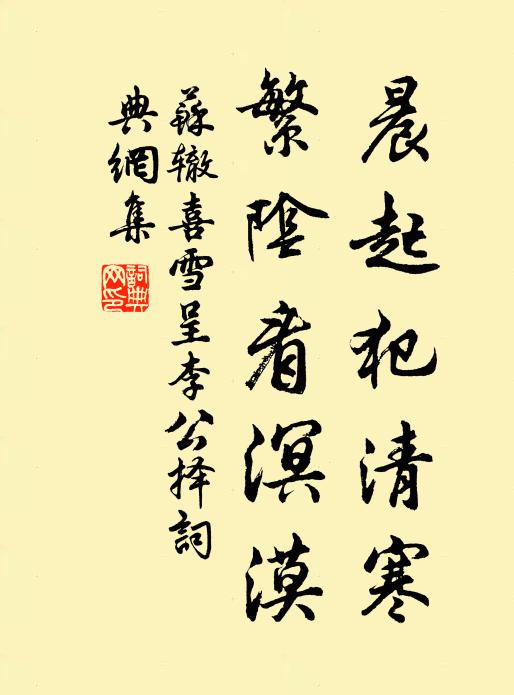 晨起犯清寒
繁陰看溟漠
蘇辙喜雪呈李公择詞
典網集
詞典
网印